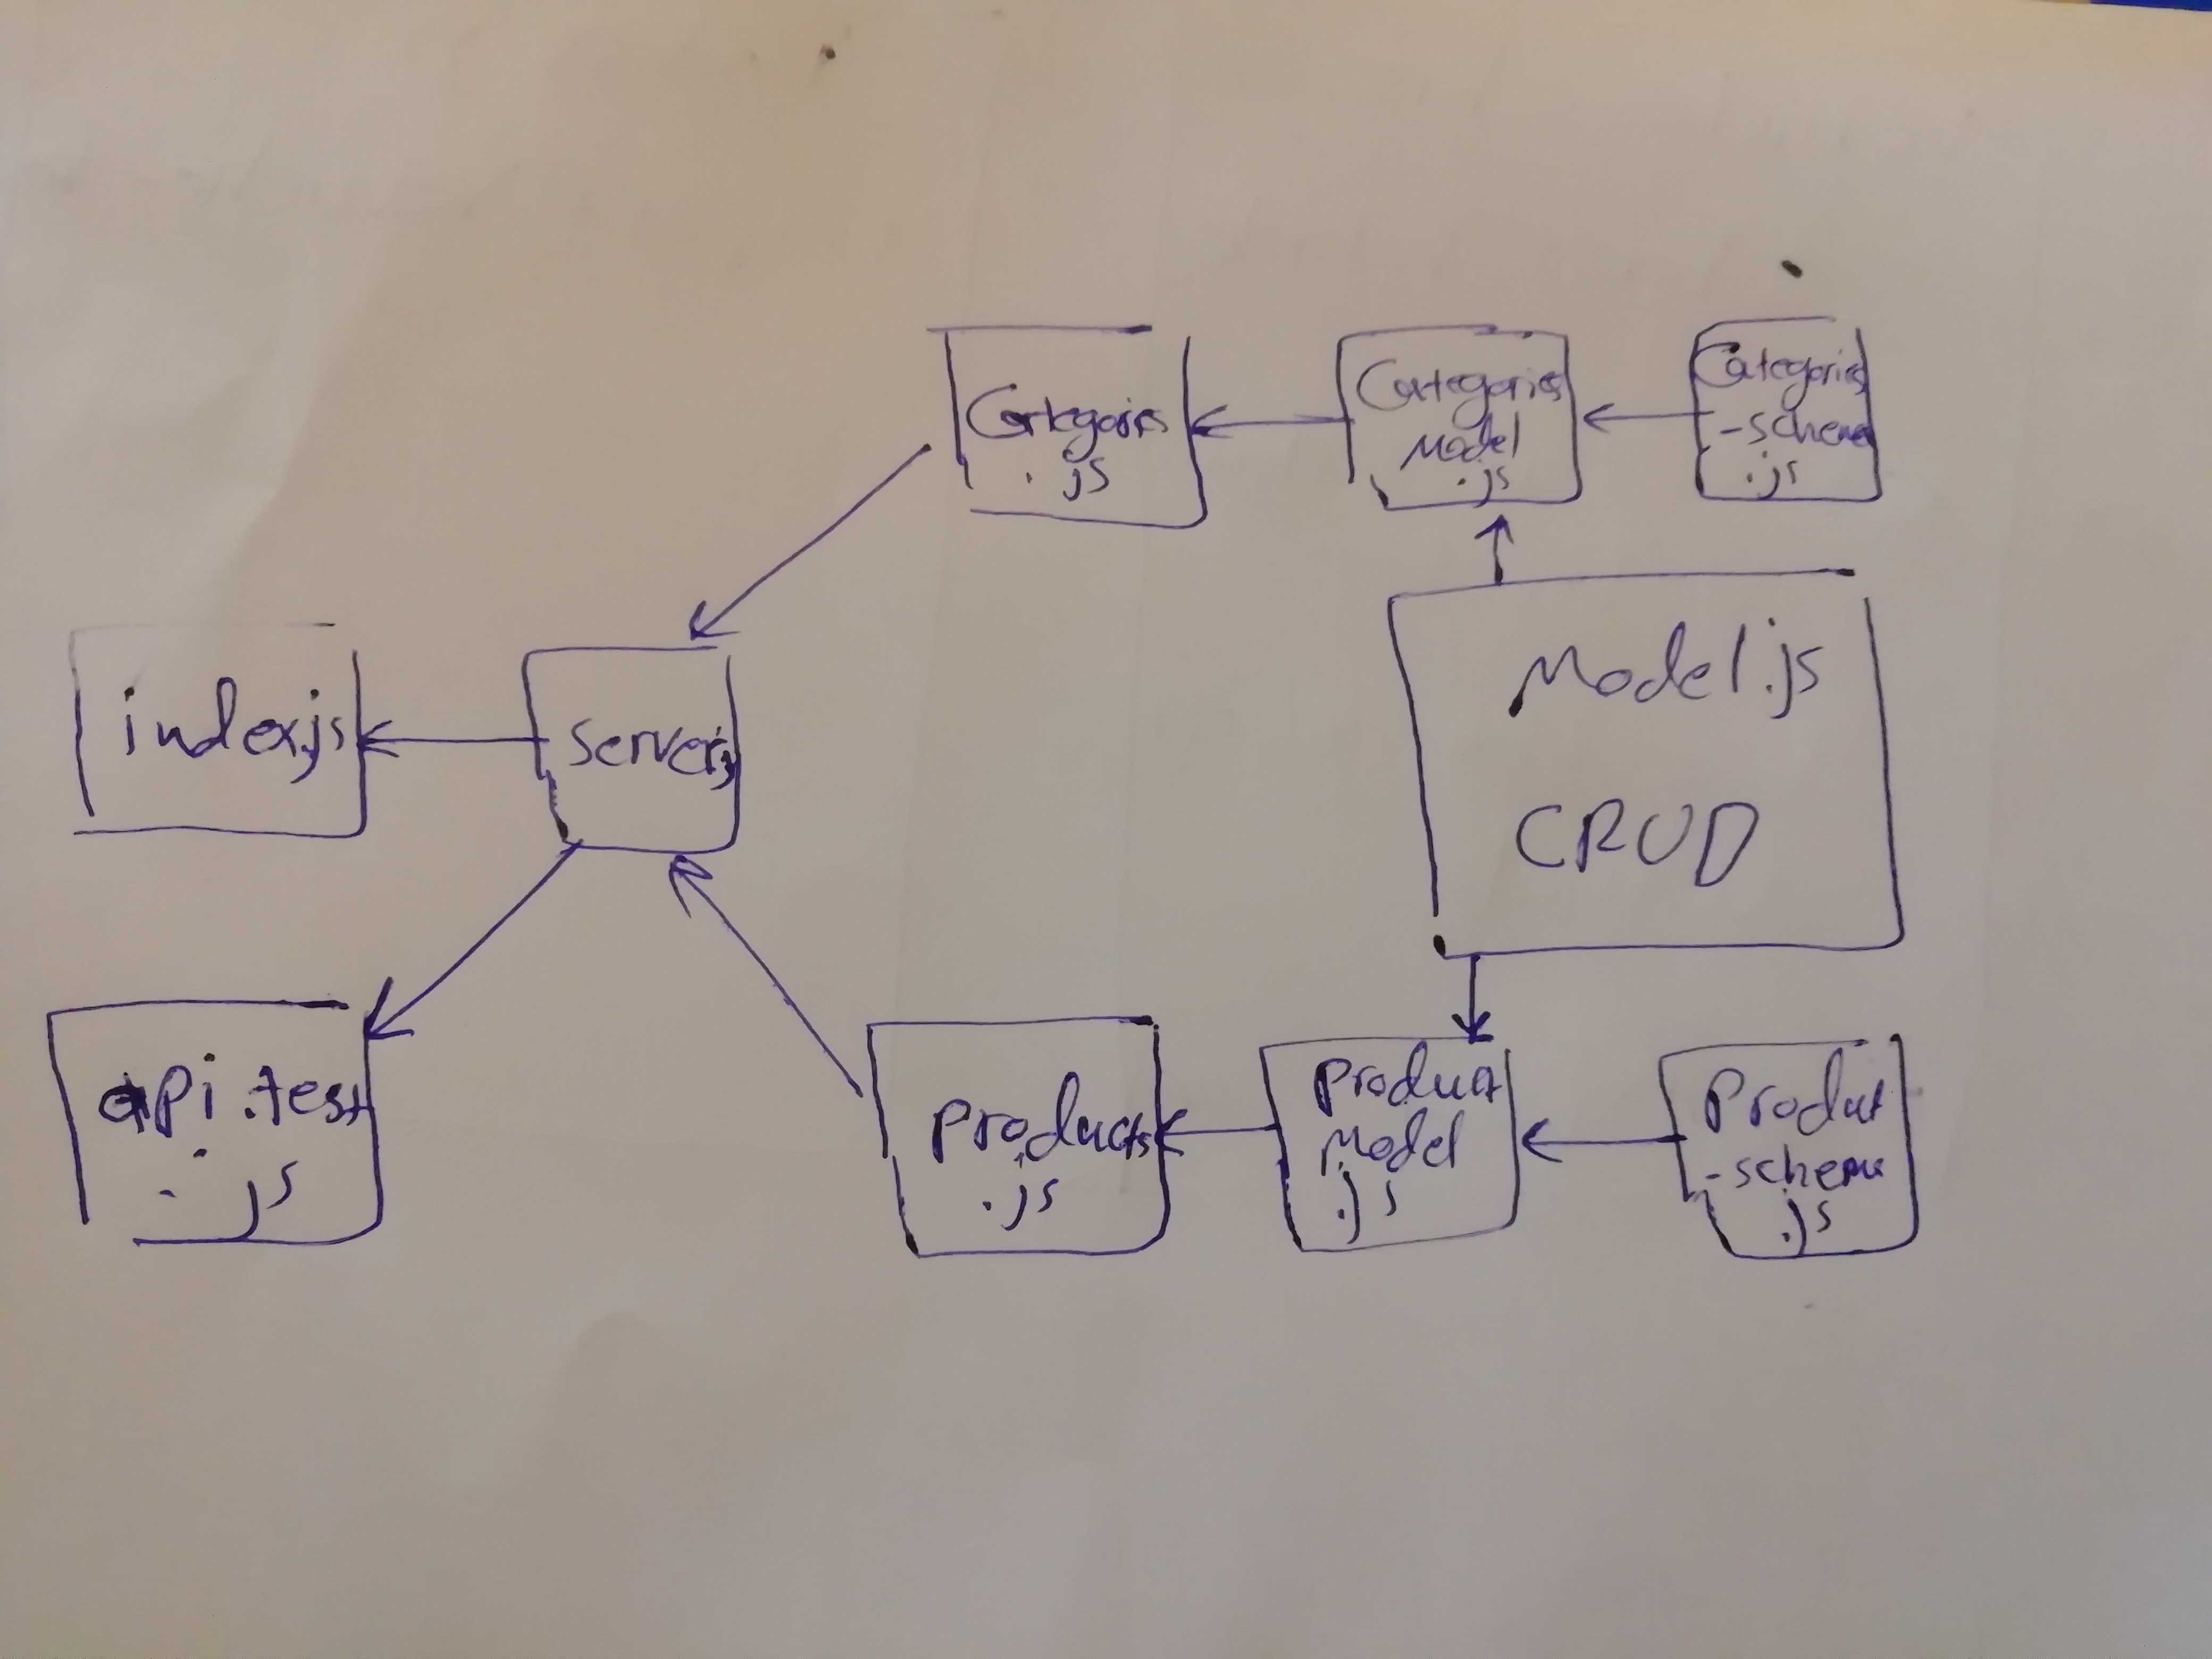 Categories
.js
Categories
Model
.js
Categories
-schema
.js
index.js
serverjs
Model.js
CRUD
api.test
.js
products
.js
product
Model
.js
Product
-schema
.js